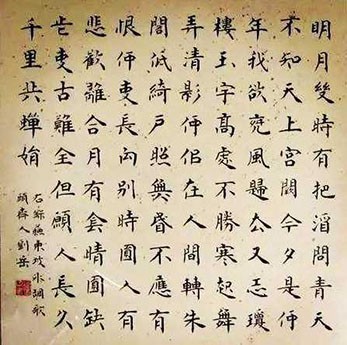 明月幾時有把酒問青天
不知天上宮闕今夕是何
年我欲乘風歸去又恐瓊
樓玉宇高處不勝寒起舞
弄清影何似在人間轉朱
閣低綺戶照無眠不應有
恨何事長向別時圓人有
悲歡離合月有陰晴圓缺
此事古難全但願人長久
千里共嬋娟
東坡水調歌
頭齋人劉岳